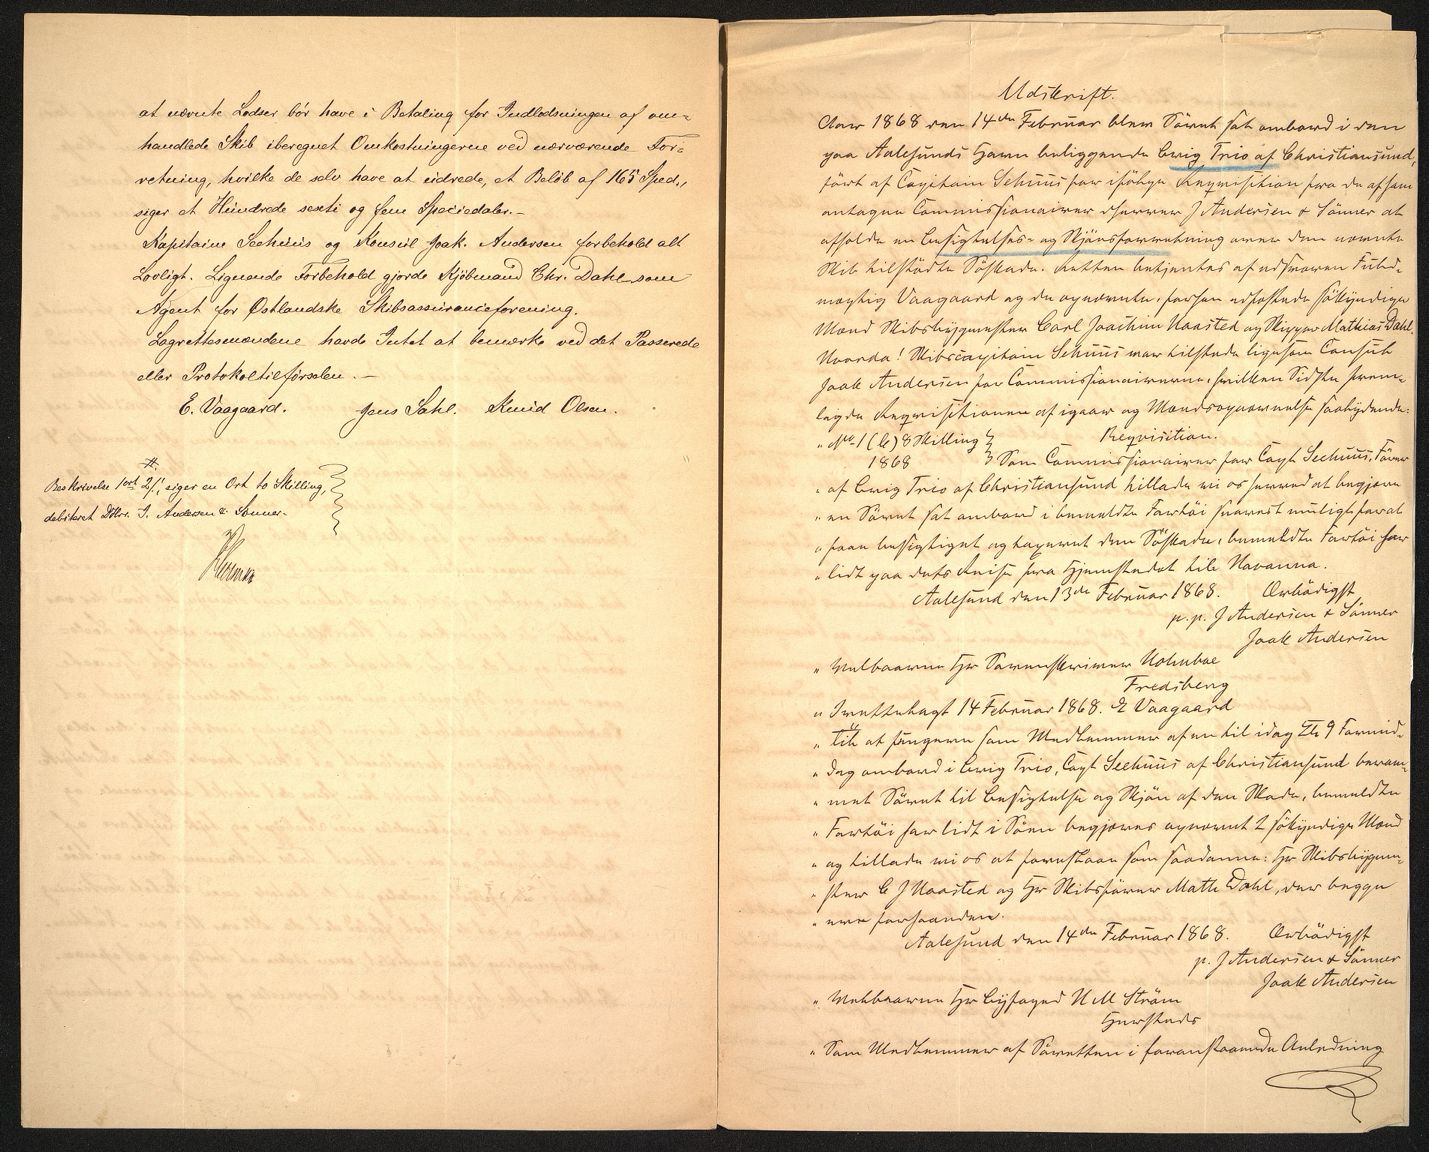 at nævnte Lodser bör have i Betaling for Indlodsningen af om-
handlede Skib iberegnet Omkostningerne ved nærværende For-
retning, hvilke de selv have at udrede, et Beløb af 165 Spd.,
siger et Hundrede sexti og fem Speciedaler.-
Kapitaine Seehuus og Konsul Joak. Andersen forbeholdt alt
Lovligt. Lignende Forbehold gjorde Kjöbmand Chr. Dahl som
Agent for Østlandske Skibsassuranceforening.
Lagrettesmændene havde Intet at bemærke ved det Passerede
eller Protokoltilførselen.-
E. Vaagaard. Jens Dahl. Knud Olsen.
Beskrivelse 1 ort 2 ß, siger en Ort to Skilling,
debiteret DHrr. J. Andersen & Sønner.
Udskrift.
Aar 1868 den 14de Februar blev Söret sat ombord i den
paa Aalesunds Havn beliggende Brig Trio af Christiansund,
fört af Capitain Sehuus for ifölge Reqvisition fra de af ham
antagne Commissionairer Herrer J Andersen & Sönner at
afholde en Besigtelses- og Skjönsforretning over den nævnte
Skib tilstödte Söskade. Retten betjentes af edsvoren Fuld-
mægtig Vaagaard og de opnævnte, forhen edfæstede sökyndige
Mænd Skibsbygmester Carl Joachim Naasted og Skipper Mathias Dahl.
Hvorda! Skibscapitain Sehuus var tilstede ligesom Consul
Joak Andersen for Commissionairerne, hvilken Sidste frem-
lagde Reqvisitionen af igaar og Mandsopnævnelse saalydende:
„ No 1 (b) 8 Skilling } Reqvisition.
1868 } Som Commissionairer for Capt Seehuus, Förer
„ af Brig Trio af Christiansund tillade vi os herved at begjære
„ en Söret sat ombord i bemeldte Fartöi snarest muligt for at
„ faae besigtiget og taxeret den Söskade, bemeldte Fartöi har
„ lidt paa dets Reise fra Hjemstedet til Havanna.
Aalesund den 13de Februar 1868. Ærbödigst
p. p. J Andersen & Sönner
Joak Andersen
„ Velbaarne Hr Sorenskriver Holmboe
Fredsberg
„ Irettelagt 14 Februar 1868. E Vaagaard
„ Til at fungere som Medlemmer af en til idag Kl 9 Formid-
„ dag ombord i Brig Trio, Capt Seehuus af Christiansund beram-
„ met Söret til Besigtelse og Skjön af den Skade, bemeldte
„ Fartöi har lidt i Söen begjæres opnævnt 2 sökyndige Mænd
„ og tillade vi os at foreslaae som saadanne: Hr Skibsbygme-
„ ster C J Naasted og Hr Skibsförer Math Dahl, der begge
„ ere forhaanden.
Aalesund den 14de Februar 1868. Ærbödigst
p. J Andersen & Sönner
Joak Andersen
„ Velbaarne Hr Byfoged H M Ström
Hersteds
„ Som Medlemmer af Söretten i foranstaaende Anledning